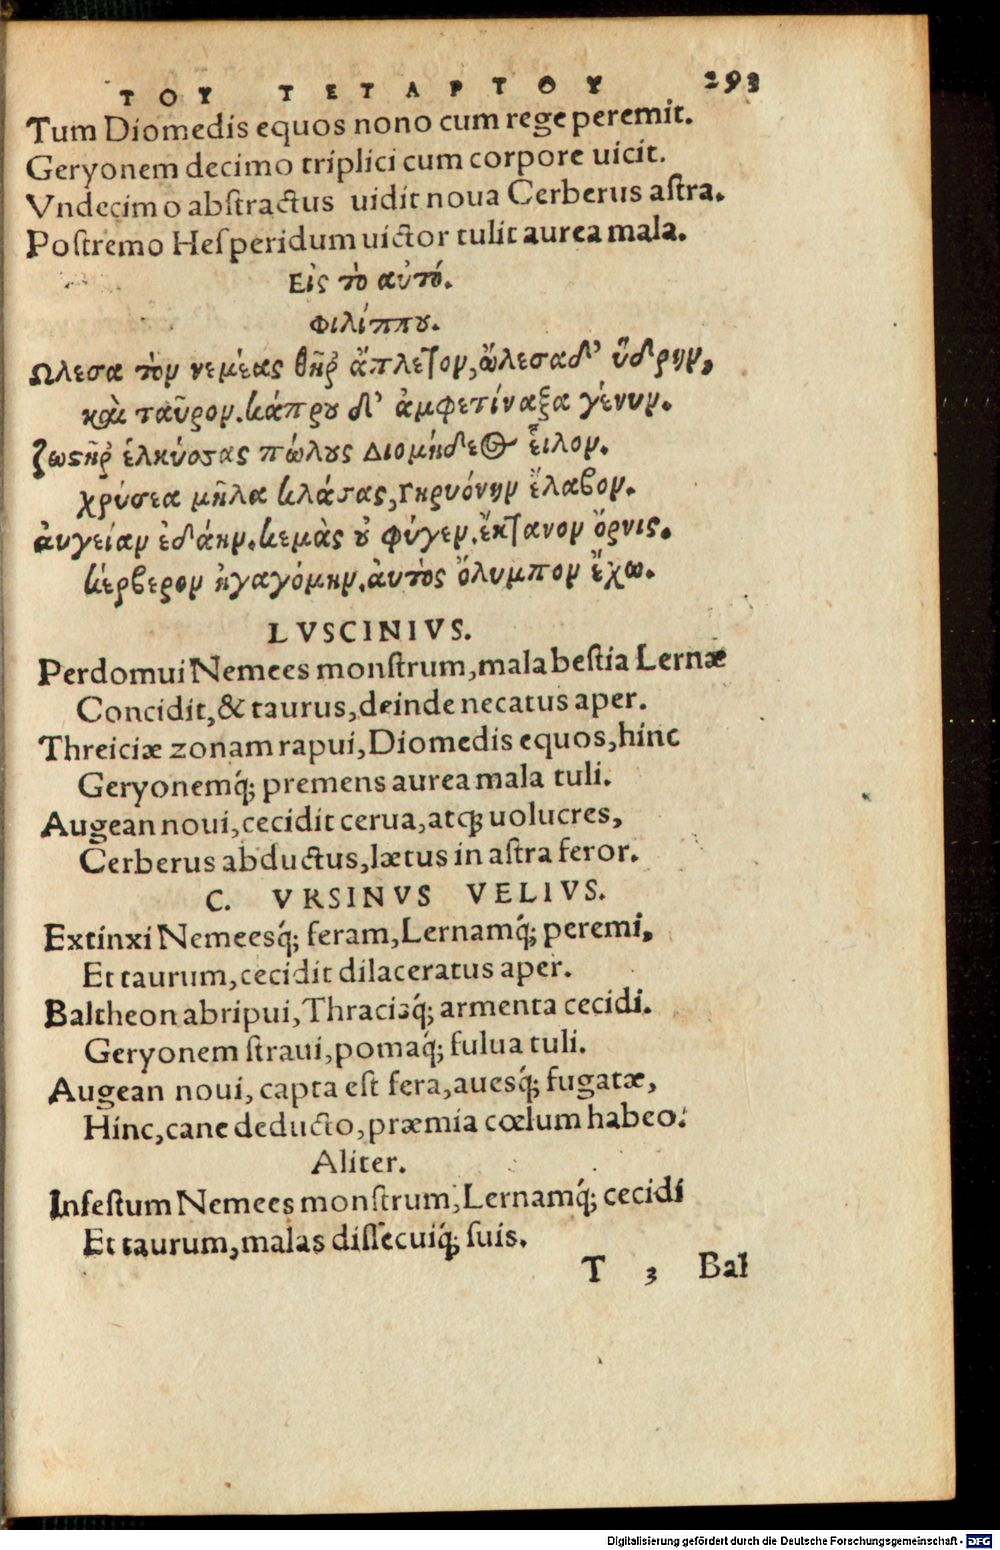 ΤΟΥ ΤΕΤΑΡΤΟΥ 293
Tum Diomedis equos nono cum rege peremit.
Geryonem decimo triplici cum corpore uicit.
Vndecimo abstractus uidit noua Cerberus astra.
Postremo Hesperidum uictor tulit aurea mala.
Εἰς τὸ αὐτό.
Φιλίππου.
Ωλεσα τὸν νεμέας θῆρ' ἄπλετον, ὤλεσα δ' ὕδρην,
καὶ ταῦρον. κάπρου δ' ἀμφετίναξα γένυν.
ζωστῆρ' ἑλκύσας πώλους Διομήδεος εἷλον.
χρύσεα μῆλα κλάσας, Γηρυόνην ἔλαβον.
ἀυγείαν ἐδάην. κεμὰς οὐ φύγεν. ἔκτανον ὄρνις.
κέρβερον ἠγαγόμην. ἀυτὸς ὄλυμπον ἔχω.
LVSCINIVS.
Perdomui Nemees monstrum, mala bestia Lernæ
Concidit, & taurus, deinde necatus aper.
Threiciæ zonam rapui, Diomedis equos, hinc
Geryonemq́; premens aurea mala tuli.
Augean noui, cecidit cerua, atq; uolucres,
Cerberus abductus, lætus in astra feror.
C. VRSINVS VELIVS.
Extinxi Nemeesq́; feram, Lernamq́; peremi,
Et taurum, cecidit dilaceratus aper.
Baltheon abripui, Thracisq́; armenta cecidi.
Geryonem straui, pomaq́; fulua tuli.
Augean noui, capta est fera, auesq́; fugatæ,
Hinc, cane deducto, præmia cœlum habeo.
Aliter.
Infestum Nemees monstrum, Lernamq́; cecidi
Et taurum, malas dissecuiq́; suis.
T 3 Bal
Digitalisierung gefördert durch die Deutsche Forschungsgemeinschaft - DFG